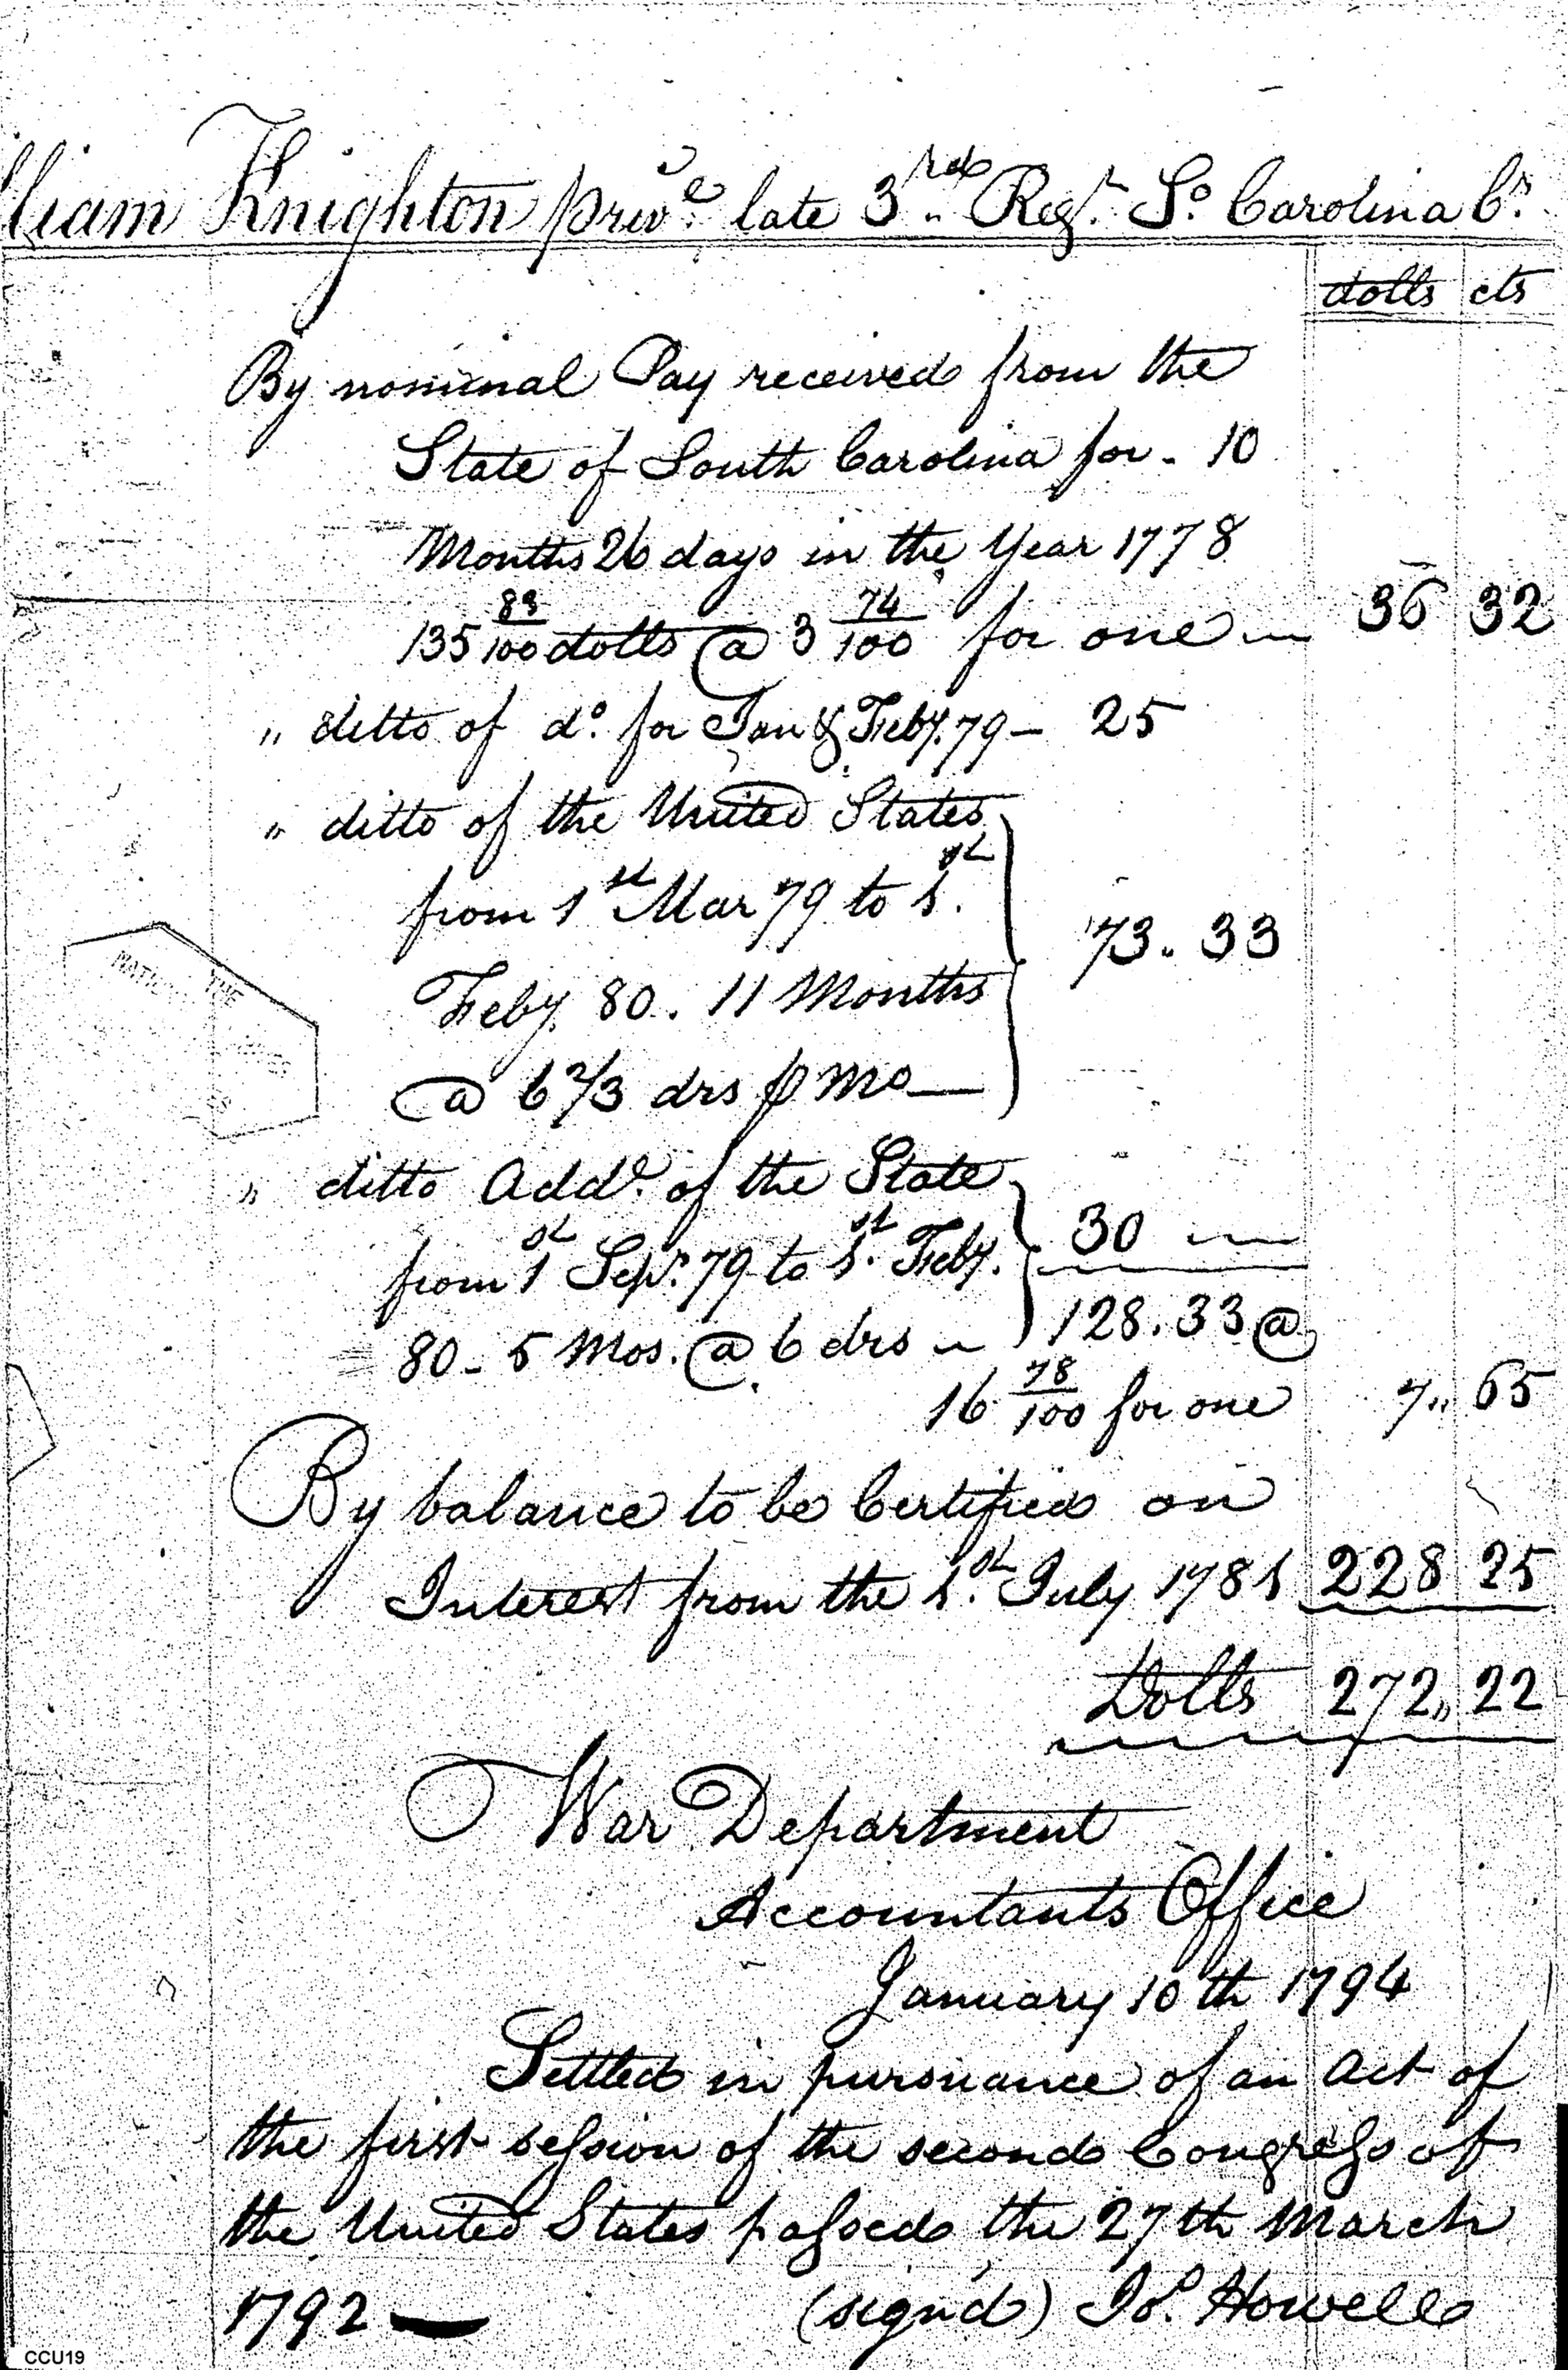 lliam Knighton priv.e late 3.rd Reg.t So. Carolina Cr.
dolls cts
By nominal Pay received from the
State of South Carolina for - 10
Months 26 days in the Year 1778
135 83/100 dolls @ 3 74/100 for one 36 32
" ditto of do. for Jan & Feby. 79 - 25
" ditto of the United States
from 1st Mar 79 to 1.st
Feby. 80. 11 Months
@ 6 2/3 drs p mo 73.. 33
" ditto Addl. of the State
from 1st Sepr. 79 to 1.st Feby. 30
80 - 5 Mos. @ 6 drs 128. 33 @
16 78/100 for one 7.. 65
By balance to be Certified on
Interest from the 1.st July 1781 228 25
Dolls 272,, 22
War Department
Accountants Office
January 10th 1794
Settled in pursuance of an act of
the first session of the second Congress of
the United States passed the 27th March
1792 — (sign'd) Jo. Howell
CCU19